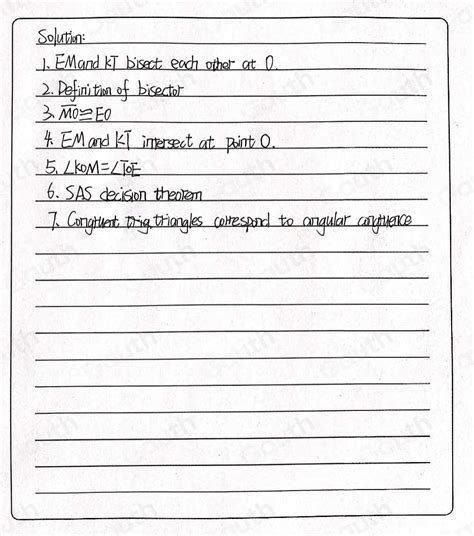 Solution:
1. EM and KT bisect each other at O.
2. Definition of bisector
3. MO≅EO
4. EM and KT intersect at point O.
5. ∠KOM=∠TOE
6. SAS decision theorem
7. Congruent trig. triangles correspond to angular congruence